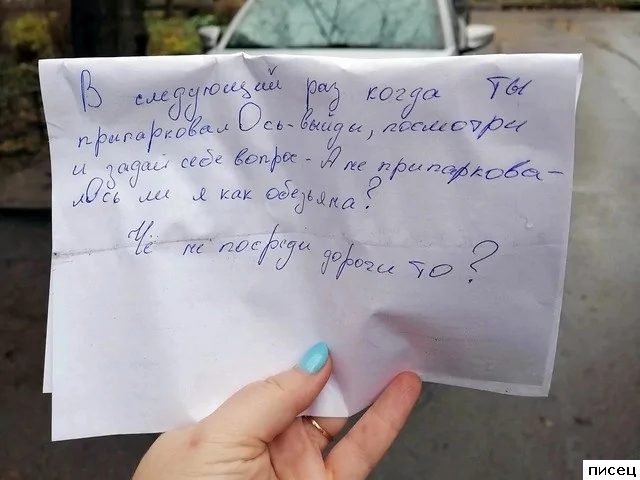 В следующий раз когда ты
припарковалОсь-выйди, посмотри
и задай себе вопрос - А не припаркова-
лОсь ли я как обезьяна?
Чё не посреди дороги то?
писец